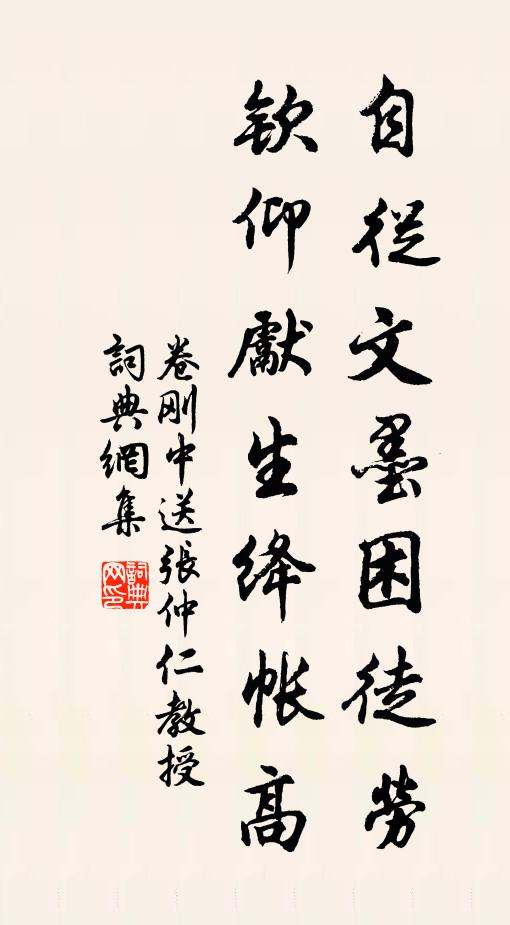 自從文墨困徒勞
欽仰獻生絳帳高
卷刚中送張仲仁教授
詞典網集
詞典
网印